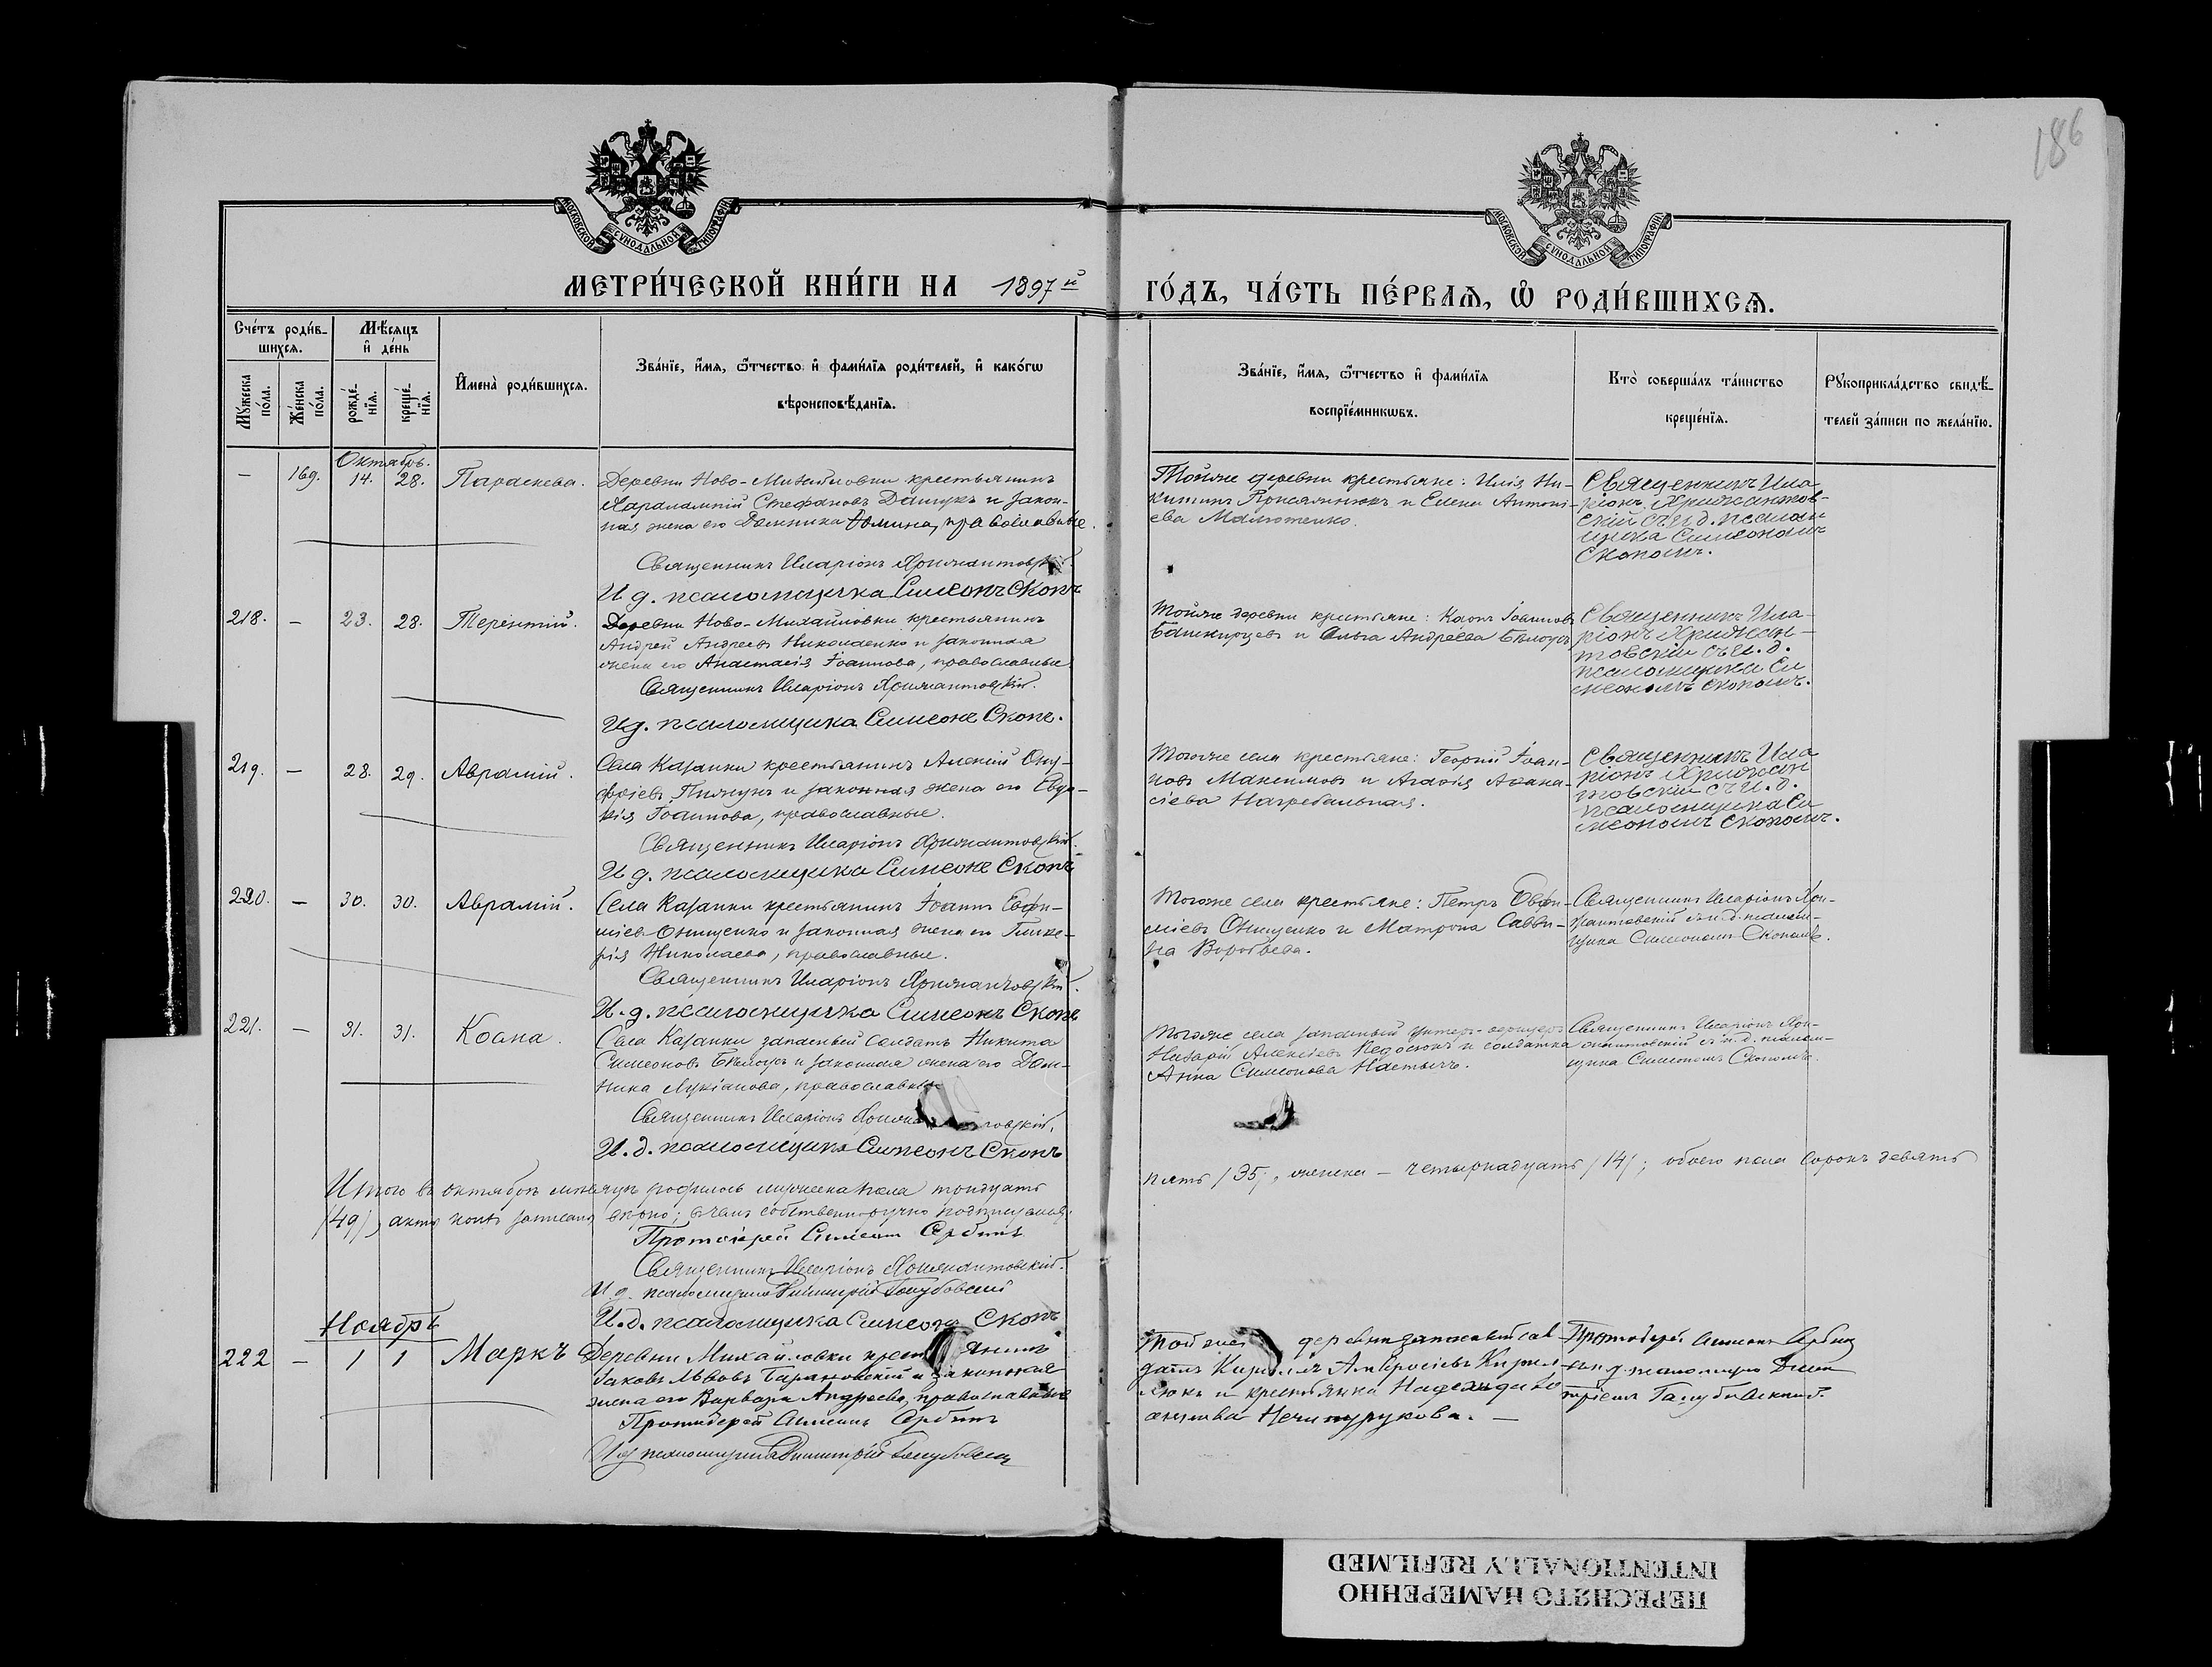 186
МОСКОВСКОЙ СѴНОДАЛЬНОЙ ТИПОГРАФІИ
МОСКОВСКОЙ СѴНОДАЛЬНОЙ ТИПОГРАФІИ
МЕТРИ́ЧЕСКОЙ КНИ́ГИ НА 1897й ГО́ДЪ, ЧА́СТЬ ПЕ́РВАѦ, Ѡ РОДИ́ВШИХСѦ.
Сче́тъ роди́в-
шихсѧ.
Мѣ́сѧцъ
и҆ де́нь
Му́жеска
по́ла.
Же́нска
по́ла.
рожде́-
нїѧ.
креще́-
нїѧ.
И҆мена̀ роди́вшихсѧ.
Зва́нїе, и҆́мѧ, ѻ҆́тчество и҆ фами́лїѧ роди́телей, и҆ како́гѡ
вѣроисповѣ́данїѧ.
Зва́нїе, и҆́мѧ, ѻ҆́тчество и҆ фами́лїѧ
воспрїе́мникѡвъ.
Кто̀ соверша́лъ та́инство
креще́нїѧ.
Рꙋкоприкла́дство свидѣ́-
телей за́писи по жела́нїю.
Октябрь.
— 169. 14. 28. Параскева.
Деревни Ново-Михайловки крестьянинъ
Харалампій Стефановъ Данукъ и закон-
ная жена его Домника Фомина, православные.
Священникъ Иларіонъ Хрижантовскій.
И д. псаломщика Симеонъ Скопъ
Тойже деревни крестьяне: Илія Ни-
китинъ и Елена Антоні-
ева Малютенко.
Священникъ Ила
ріонъ Хрижантов-
скій съ и д. псалом
щика Симеономъ
Скопомъ.
218. — 23. 28. Терентій.
Деревни Ново-Михайловки крестьянинъ
Андрей Андреевъ Николаенко и законная
жена его Анастасія Іоаннова, православные
Священникъ Иларіонъ Хрижантовскій.
И д. псаломщика Симеонъ Скопъ.
Тойже деревни крестьяне: Іоанновъ
Башкирцевъ и Ольга Андреева Бѣлоусъ
Священникъ Ила-
ріонъ Хрижан-
товскій съ и. д.
псаломщика Си
меономъ Скопомъ.
219. — 28. 29. Аврамій.
Села Казанки крестьянинъ Алексій Ону-
фріевъ и законная жена его Евдо-
кія Іоаннова, православные.
Священникъ Иларіонъ Хрижантовскій.
И д. псаломщика Симеонъ Скопъ
Тогоже села крестьяне: Георгій Іоан-
новъ Максимовъ и Агафія Афана-
сіева Нагребельная.
Священникъ Ила
ріонъ Хрижан
товскій съ и. д.
псаломщика Си
меономъ Скопомъ.
220. — 30. 30. Аврамій.
Села Казанки крестьянинъ Іоаннъ Евфи-
міевъ Онищенко и законная жена его Глике-
рія Николаева, православные.
Священникъ Иларіонъ Хрижантовскій.
И. д. псаломщика Симеонъ Скопъ
Тогоже села крестьяне: Петръ Евфи-
міевъ Онищенко и Матрона Савви-
на Воробьева.
Священникъ Иларіонъ Хри-
жантовскій съ и. д. псалом-
щика Симеономъ Скопомъ.
221. — 31. 31. Косма.
Села Казанки запасный солдатъ Никита
Симеоновъ Бѣлоусъ и законная жена его Дом-
ника Лукіанова, православные
Священникъ Иларіонъ
И. д. псаломщика Симеонъ Скопъ
Тогоже села запасный унтеръ-офицеръ
Назарій Алексіевъ и солдатка
Анна Симеонова
Священникъ Иларіонъ Хри-
жантовскій съ и. д. псалом-
щика Симеономъ Скопомъ.
Итого въ октябрѣ мѣсяцѣ родилось мужеска пола тридцать пять /35/, женска — четырнадцать /14/; обоего пола сорокъ девять
/49/, записаны вѣрно; въ чемъ собственноручно подписуемся:
Протоіерей Симеонъ Сербинъ
Священникъ Иларіонъ Хрижантовскій.
И. д. псаломщика Димитрій Голубовскій
И. д. псаломщика Симеонъ Скопъ
Ноябрь
222 — 1 1 Маркъ
Деревни Михайловки
Іаковъ Львовъ Барановскій и законная
жена его Варвара Андреева, православные
Протоіерей Симеонъ Сербинъ
И д псаломщика Димитрій Голубовскій
Той же деревни запасный сол-
датъ Кириллъ Амвросіевъ Кирил-
люкъ и крестьянка Надежда
Нечипурукова. —
Протоіерей Симеонъ Сербинъ
съ и д. псаломщика Дими
тріемъ Голубовскимъ.
ПЕРЕСНЯТО НАМЕРЕННО
INTENTIONALLY REFILMED